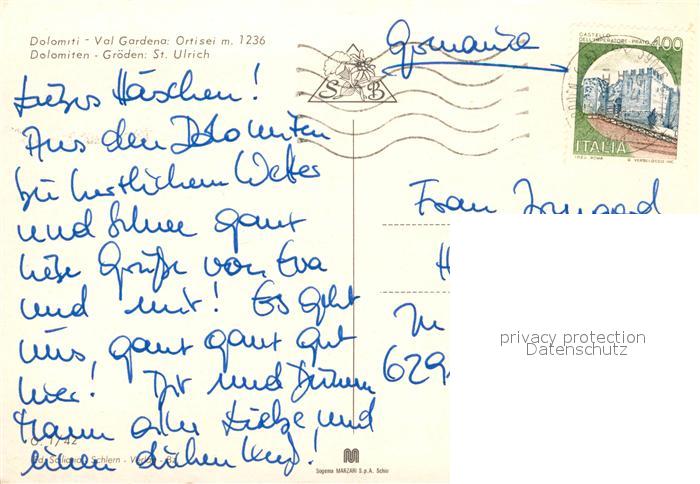 Dolomiti - Val Gardena: Ortisei m. 1236
Dolomiten - Gröden: St. Ulrich
Liebes Häschen!
Aus den Dolomiten
bei herrlichem Wetter
und Schnee ganz
liebe Grüße von Eva
und mir! Es geht
uns, ganz ganz gut
hier! Dir und Deinem
Mann alles Liebe und
einen dicken Kuß!
G. 1/42
Schlern - Verlag - Bz
S B
Sogema MARZARI S.p.A. Schio
Germania
CASTELLO
DELL'IMPERATORE - PRATO
400
ITALIA
I.P.Z.S. ROMA
Frau Irmgard
H
In
629
privacy protection
Datenschutz